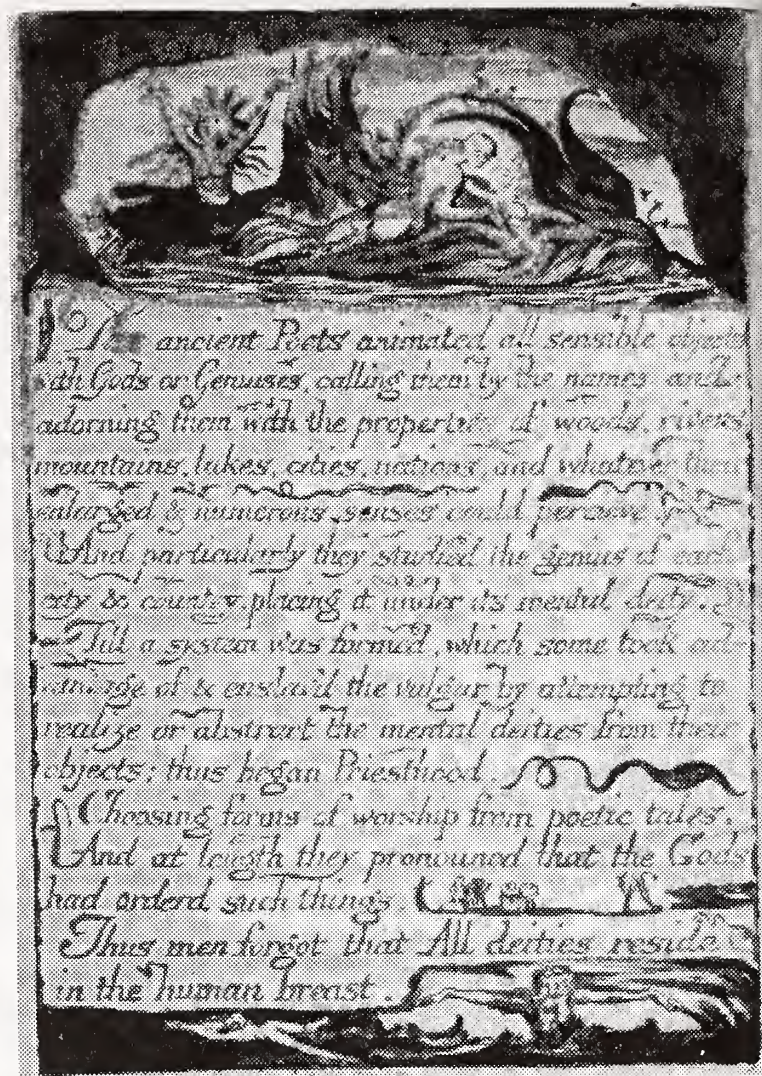 The ancient Poets animated all sensible objects
with Gods or Geniuses, calling them by the names and
adorning them with the properties of woods, rivers,
mountains, lakes, cities, nations, and whatever their
enlarged & numerous senses could percieve.
And particularly they studied the genius of each
city & country, placing it under its mental deity.
Till a system was formed, which some took ad-
vantage of & enslav'd the vulgar by attempting to
realize or abstract the mental deities from their
objects; thus began Priesthood.
Choosing forms of worship from poetic tales.
And at length they pronounced that the Gods
had orderd such things.
Thus men forgot that All deities reside
in the human breast.